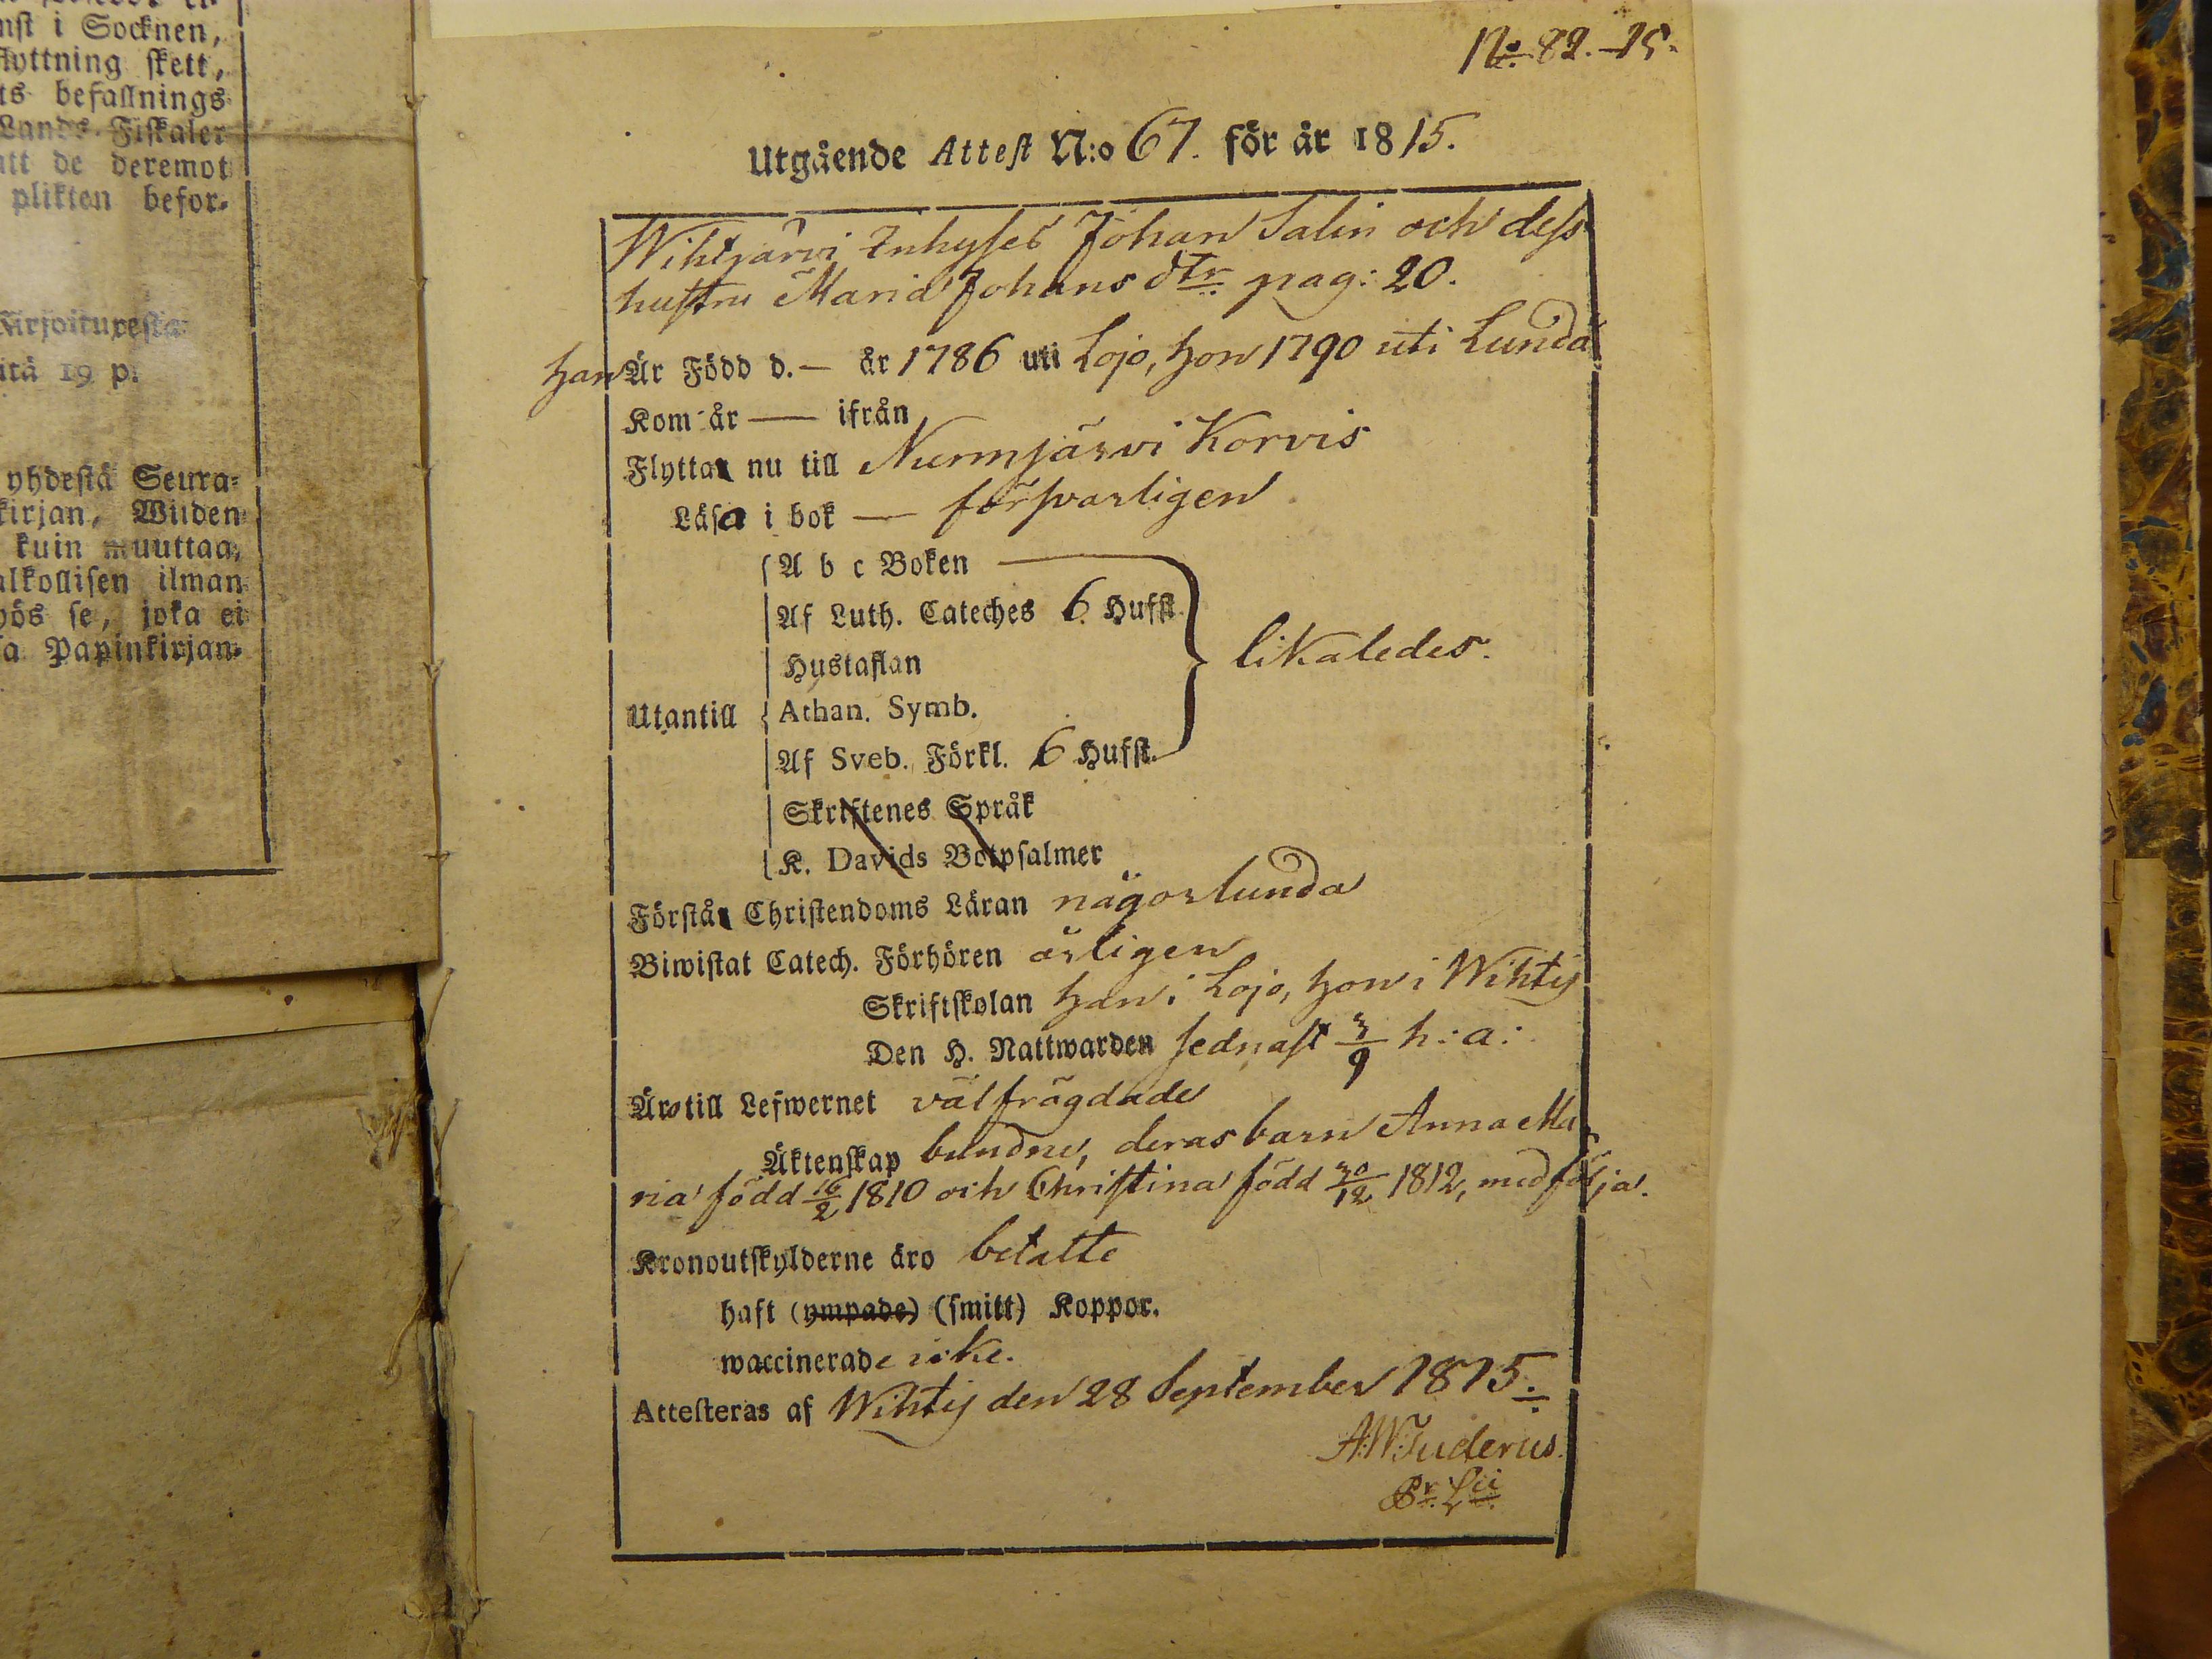 nst i Socknen,
flyttning skett,
ts befallnings
Lands-Fiskaler
att de deremot
plikten befor-
itä 19 p.
yhdestä Seura-
kirjan, Wuoden
kuin muuttaa,
alkollisen ilman
yös se, joka ei
sa Papinkirjan-
No. 82.-15.
Utgående Attest N:o 67. för år 1815.
Wihtjärvi Inhyses Johan Salin och dess
hustru Maria Johans dtr. pag: 20.
han Är Född d. — år 1786 uti Lojo, hon 1790 uti Lunda
Kom år — ifrån
Flytta nu till Nurmjärvi Korvis
Läsa i bok — försvarligen
A b c Boken
Af Luth. Cateches 6. Hufst.
Hustaflan
likaledes.
Utantill Athan. Symb.
Af Sveb. Förkl. 6 Hufst.
Skriftenes Språk
K. Davids Botpsalmer
Förstå Christendoms Läran någorlunda
Biwistat Catech. Förhören årligen
Skriftskolan han i Lojo, hon i Wihtij
Den H. Nattwarden sednast 3/9 h: a:
Äro till Lefwernet välfrägdade
Äktenskap bundne, deras barn Anna Ma
ria född 16/2 1810 och Christina född 30/12 1812, medfölja.
Kronoutskylderne äro betalte
haft (ympade) (smitt) Koppor.
waccinerade icke.
Attesteras af Wihtij den 28 September 1815.
A:W:Tuderus.